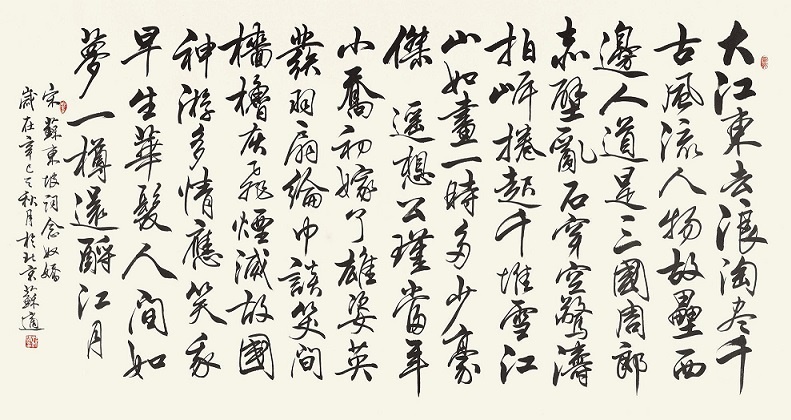 大江東去浪淘尽千
古風流人物故壘西
邊人道是三國周郎
赤壁亂石穿空驚濤
拍岸捲起千堆雪江
山如畫一時多少豪
傑 遥想公瑾當年
小喬初嫁了雄姿英
發羽扇綸巾談笑間
檣櫓灰飛煙滅故國
神游多情應笑我
早生華髮人間如
夢一樽還酹江月
宋蘇東坡詞念奴嬌
歲在辛巳之秋月於北京蘇適